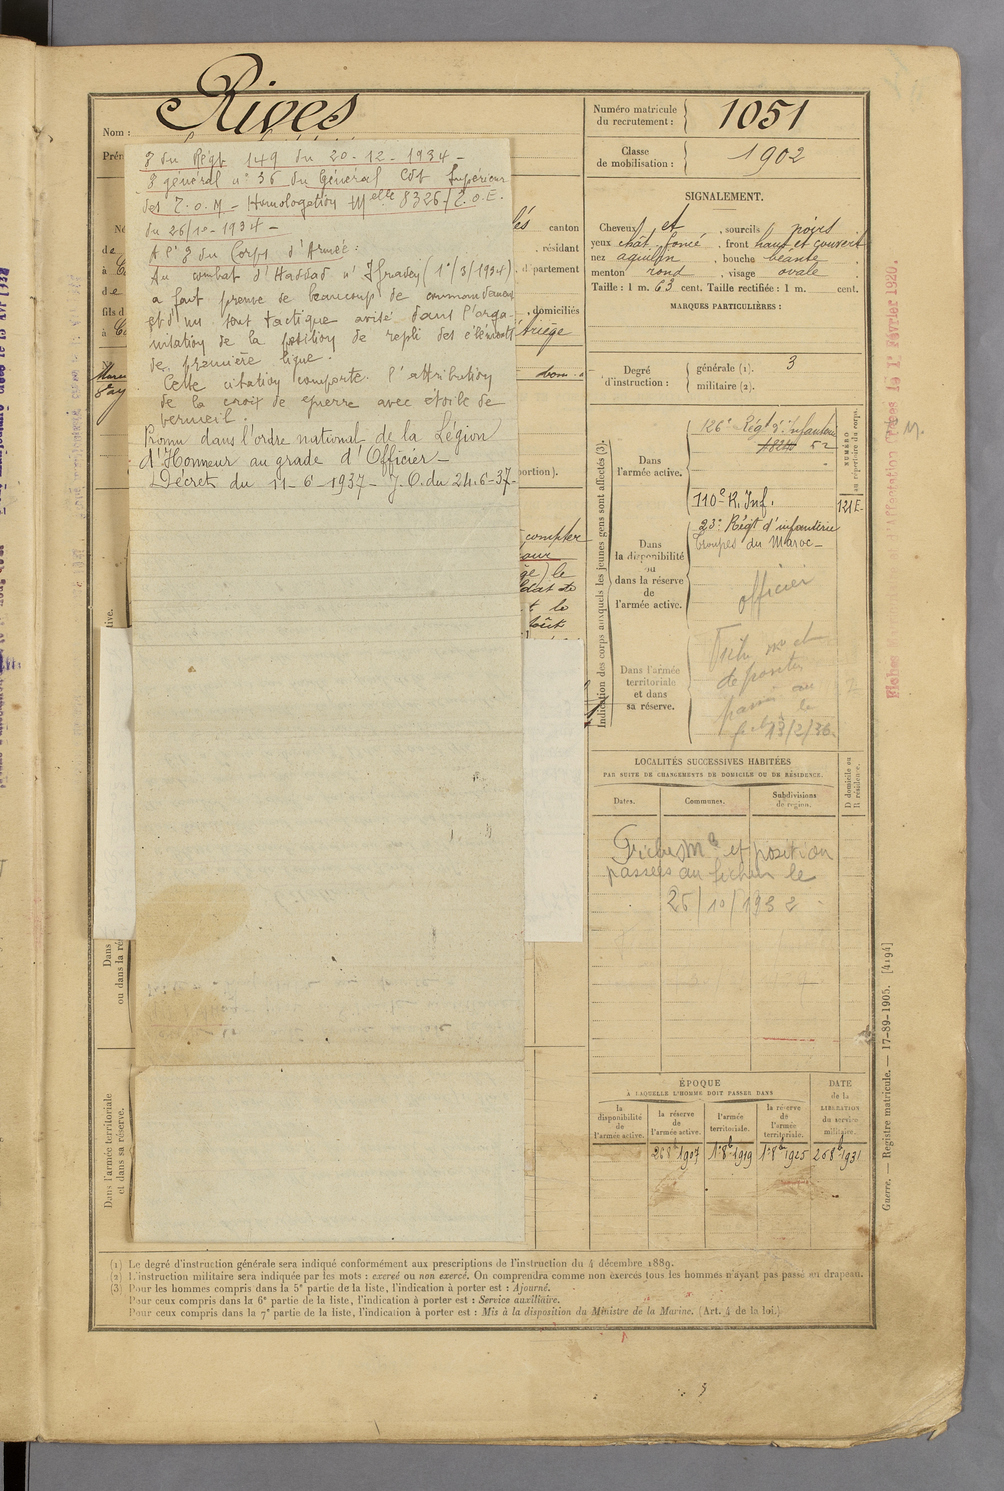 Nom :
Rives
Numéro matricule
du recrutement :
1051
Classe
de mobilisation :
1902
J du Régt 149 du 20-12-1934-
J général n° 36 du Général Cdt Supérieur
des T.O.M - Homologation Melle 8326/T.O.E.
du 26/10-1934-
A l'J du Corps d'Armée :
Au combat d'Hassad n' Ifradey (1°/3/1934)
a fait preuve de beaucoup de commandement
et d'un sens tactique avisé dans l'orga-
nisation de la position de repli des éléments
de première ligne.
Cette citation comporte l'attribution
de la croix de guerre avec etoile de
vermeil.
Promu dans l'ordre national de la Légion
d'Honneur au grade d'Officier-
Décret du 11-6-1937- J.O. du 24.6-37-
canton
, résidant
département
, domiciliés
Ariège
dom.
portion).
compter
ge) le
t le
SIGNALEMENT.
Cheveux et , sourcils noirs
yeux chât. foncé , front haut et couvert
nez aquilin , bouche béante
menton rond , visage ovale
Taille : 1 m. 63 cent. Taille rectifiée : 1 m. cent.
MARQUES PARTICULIÈRES :
Degré
d'instruction :
générale (1). 3
militaire (2).
Indication des corps auxquels les jeunes gens sont affectés (3).
NUMÉRO
au répertoire du corps.
Dans
l'armée active.
126e Régt d'Infanterie
52
110e R. Inf.
121E
Dans
la disponibilité
ou
dans la réserve
de
l'armée active.
23e Régt d'infanterie
Troupes du Maroc-
officier
Dans l'armée
territoriale
et dans
sa réserve.
Fiche me et
de position
passé au
le
13/2/36
LOCALITÉS SUCCESSIVES HABITÉES
PAR SUITE DE CHANGEMENTS DE DOMICILE OU DE RÉSIDENCE.
D domicile ou
R résidence.
Dates.
Communes.
Subdivisions
de région.
Fiches Me et position
passées au fichier le
26/10/1932
ÉPOQUE
A LAQUELLE L'HOMME DOIT PASSER DANS
la
disponibilité
de
l'armée active.
la réserve
de
l'armée active.
l'armée
territoriale.
la réserve
de
l'armée
territoriale.
DATE
de la
LIBÉRATION
du service
militaire.
26 8b 1907
1° 8b 1919
1° 8b 1925
26 8b 1931
Dans
ou dans la ré
Dans l'armée territoriale
et dans sa réserve.
Guerre. — Registre matricule. — 17-89-1905. [4194]
(1) Le degré d'instruction générale sera indiqué conformément aux prescriptions de l'instruction du 4 décembre 1889.
(2) L'instruction militaire sera indiquée par les mots : exercé ou non exercé. On comprendra comme non exercés tous les hommes n'ayant pas passé au drapeau.
(3) Pour les hommes compris dans la 5e partie de la liste, l'indication à porter est : Ajourné.
Pour ceux compris dans la 6e partie de la liste, l'indication à porter est : Service auxiliaire.
Pour ceux compris dans la 7e partie de la liste, l'indication à porter est : Mis à la disposition du Ministre de la Marine. (Art. 4 de la loi.)